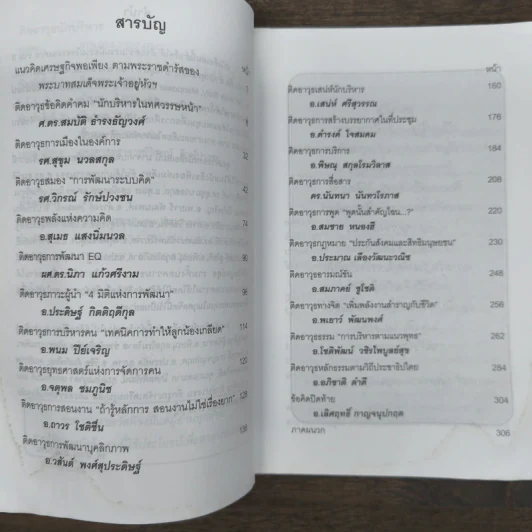 สารบัญ
หน้า
แนวคิดเศรษฐกิจพอเพียง ตามพระราชดำรัสของ
พระบาทสมเด็จพระเจ้าอยู่หัวฯ
ติดอาวุธข้อคิดคำคม "นักบริหารในทศวรรษหน้า"
ศ.ดร.สมบัติ ธำรงธัญวงศ์
ติดอาวุธการเมืองในองค์การ 32
รศ.สุขุม นวลสกุล
ติดอาวุธสมอง "การพัฒนาระบบคิด" 42
รศ.วิกรณ์ รักษ์ปวงชน
ติดอาวุธพลังแห่งความคิด 74
อ.สุเมธ แสงนิ่มนวล
ติดอาวุธการพัฒนา EQ 90
ผศ.ดร.นิภา แก้วศรีงาม
ติดอาวุธภาวะผู้นำ "4 มิติแห่งการพัฒนา" 98
อ.ประดิษฐ์ กิตติฤดีกุล
ติดอาวุธการบริหารคน "เทคนิคการทำให้ลูกน้องเกลียด" 114
อ.พนม ปีย์เจริญ
ติดอาวุธยุทธศาสตร์แห่งการจัดการคน 126
อ.จตุพล ชมภูนิช
ติดอาวุธการสอนงาน "ถ้ารู้หลักการ สอนงานไม่ใช่เรื่องยาก"
อ.ถาวร โชติชื่น
ติดอาวุธการพัฒนาบุคลิกภาพ
อ.วสันต์ พงศ์สุประดิษฐ์
หน้า
ติดอาวุธเสน่ห์นักบริหาร 160
อ.เสน่ห์ ศรีสุวรรณ
ติดอาวุธการสร้างบรรยากาศในที่ประชุม 176
อ.ดำรงค์ ใจสมคม
ติดอาวุธการบริการ 184
อ.พิษณุ สกุลโรมวิลาส
ติดอาวุธการสื่อสาร 208
ดร.นันทนา นันทวโรภาส
ติดอาวุธการพูด "พูดนั้นสำคัญไฉน...?" 220
อ.สมชาย หนองฮี
ติดอาวุธกฎหมาย "ประกันสังคมและสิทธิมนุษยชน" 230
อ.ประมาณ เลืองวัฒนะวณิช
ติดอาวุธอารมณ์ขัน 246
อ.สมภาคย์ ชูโชติ
ติดอาวุธทางจิต "เพิ่มพลังงานสำราญกับชีวิต" 256
อ.พเยาว์ พัฒนพงศ์
ติดอาวุธธรรม "การบริหารตามแนวพุทธ" 262
อ.โชติพัฒน์ วชิรไพบูลย์สุข
ติดอาวุธหลักธรรมตามวิถีประชาธิปไตย 284
อ.อภิชาติ ดำดี
ข้อคิดปิดท้าย 304
อ.เลิศฤทธิ์ กาญจนูปกฤต
ภาคผนวก 306